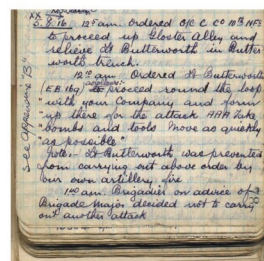 5.8.16. 12⁵ am. Ordered O/C C Co 10th NFs
to proceed up Gloster Alley and
relieve Lt Butterworth in Butter-
worth trench.
12 am. Ordered Lt Butterworth
(EB 169) to proceed round the loop
"with your Company and form
up there for the attack AAA Take
bombs and tools move as quickly
as possible"
note:- Lt Butterworth was prevented
from carrying out above order by
our own artillery fire
1 am. Brigadier on advice of
Brigade Major decided not to carry
out another attack
See Appendix "B"